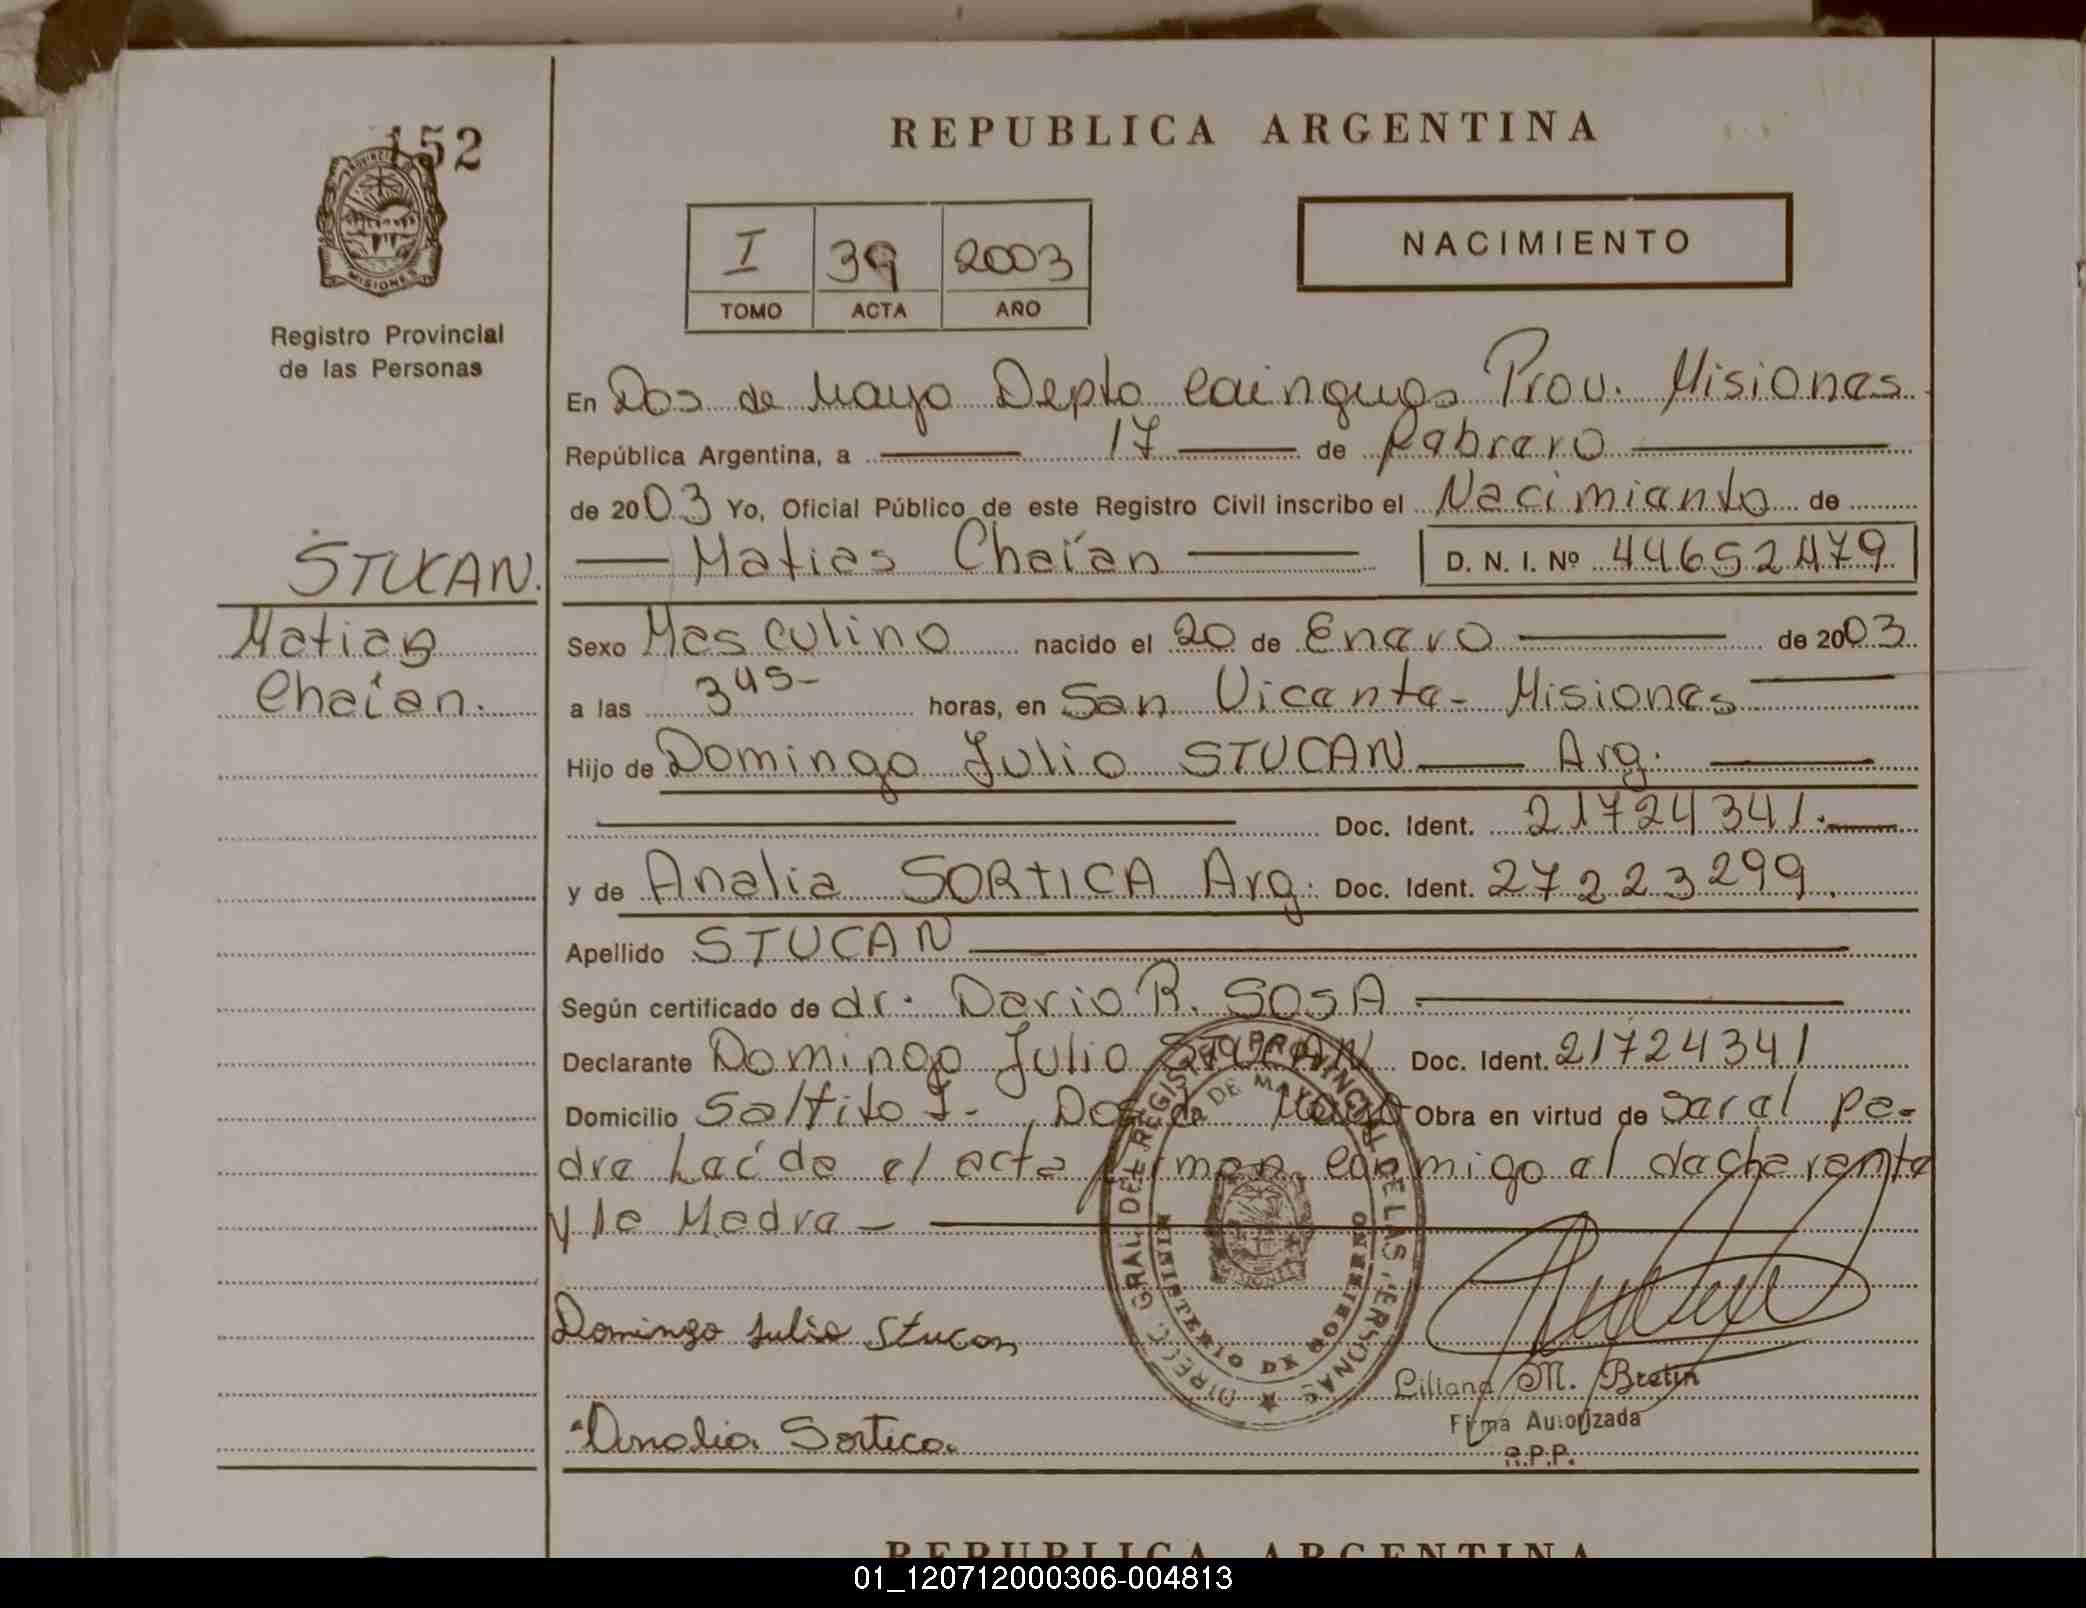 152
REPUBLICA ARGENTINA
I 39 2003
TOMO ACTA AÑO
NACIMIENTO
PROVINCIA
MISIONES
Registro Provincial
de las Personas
En Dos de Mayo Depto Cainguas Prov. Misiones
República Argentina, a 17 de Febrero
de 2003 Yo, Oficial Público de este Registro Civil inscribo el Nacimiento de
STUCAN. Matias Cheían D. N. I. Nº 44652479
Matias Sexo Masculino nacido el 20 de Enero de 2003
Cheían. a las 3 45- horas, en San Vicente - Misiones
Hijo de Domingo Julio STUCAN Arg.
Doc. Ident. 21724341.
y de Analia SORTICA Arg. Doc. Ident. 27223299.
Apellido STUCAN
Según certificado de dr. Dario R. SOSA
Declarante Domingo Julio STUCAN Doc. Ident. 21724341
Domicilio Saltito I - Dos de Mayo Obra en virtud de ser el pa-
dre Leída el acta firman conmigo el declarante
y la Madre -
DIRECC. GRAL. DEL REGISTRO PROVINCIAL DE LAS PERSONAS
DE MAYO
MINISTERIO DE GOBIERNO
Domingo Julio Stucan
Liliana M. Bretin
Firma Autorizada
R.P.P.
Analia Sortica
REPUBLICA ARGENTINA
01_120712000306-004813